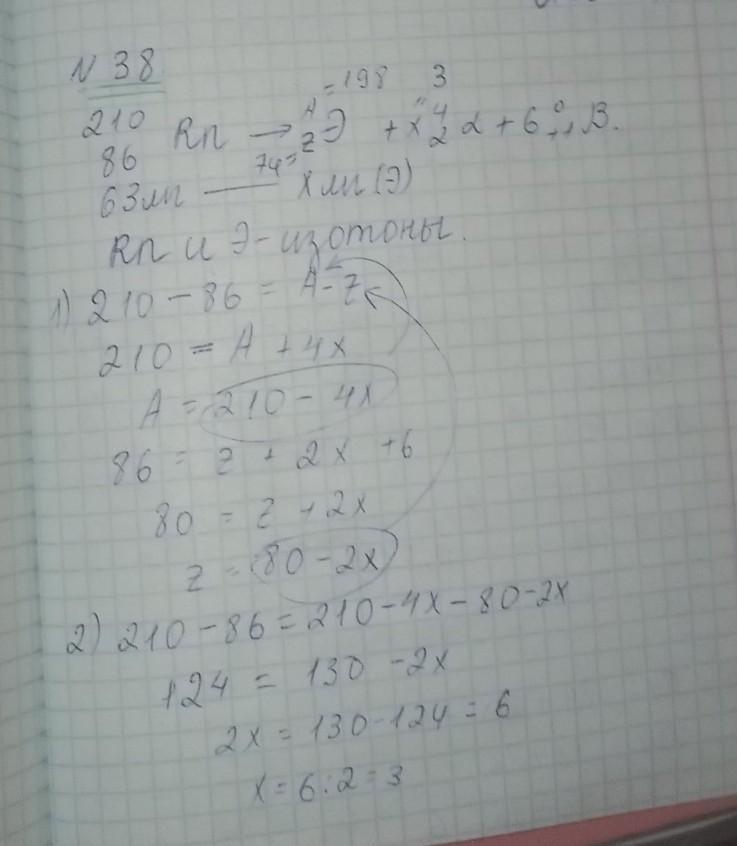 N 38
=198 3
²¹⁰₈₆Rn → ᴬ_ZЭ + x ⁴₂α + 6 ⁰₊₁β.
74=
63 mл — x mл (Э)
Rn и Э-изотоны.
1) 210 - 86 = A - Z
210 = A + 4x
A = 210 - 4x
86 = z + 2x + 6
80 = z + 2x
z = 80 - 2x
2) 210 - 86 = 210 - 4x - 80 - 2x
124 = 130 - 2x
2x = 130 - 124 = 6
x = 6 : 2 = 3